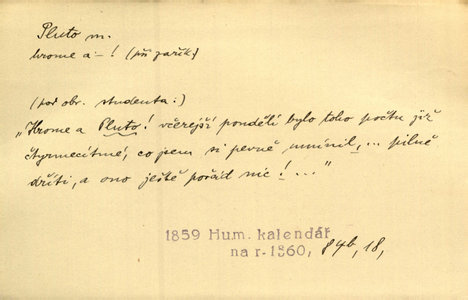 Pluto m.
hrome a – ! (při zařík.)
(pod obr. studenta:)
„Hrome a Pluto! včerejší pondělí bylo toho počtu již
čtyrmecítmé, co jsem si pevně umínil, ... pilně
držeti, a ono ještě pořád nic! ..."
1859 Hum. kalendář
na r. 1860, 84b, 18,